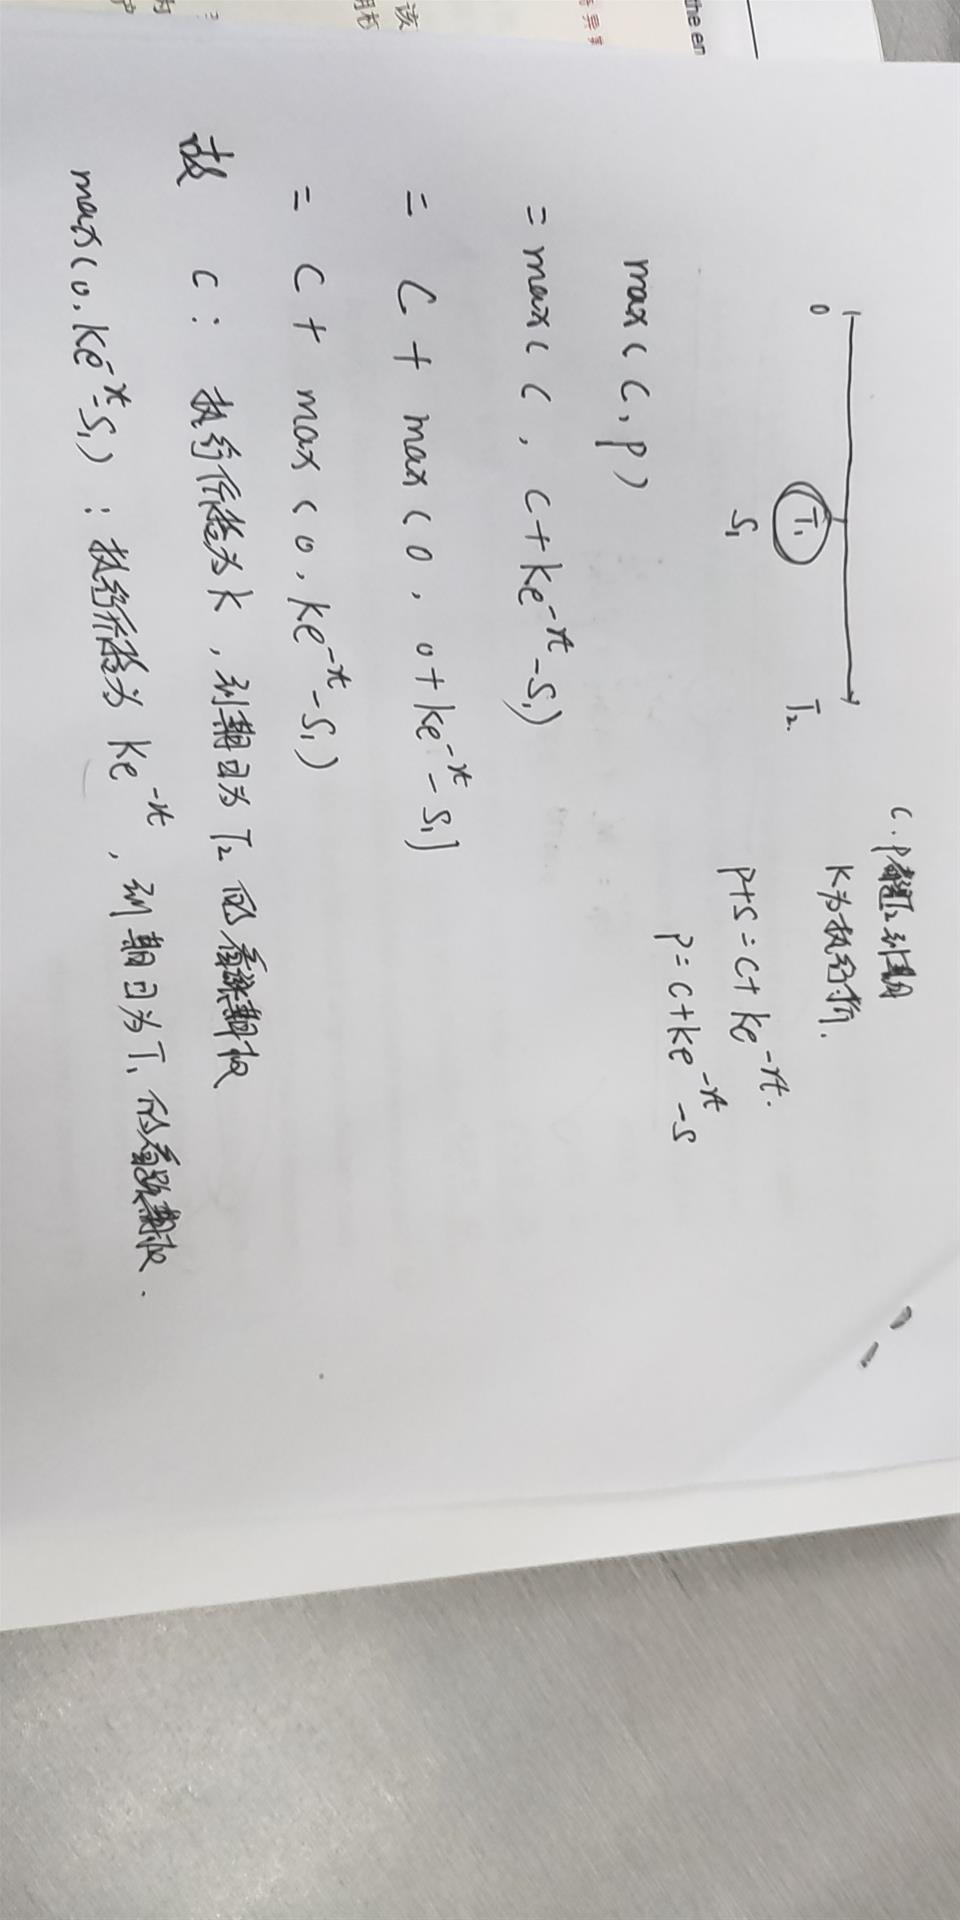 c、p都是T₂到期
K为执行价.
0 T₁ T₂.
S₁
p+s=c+ke⁻ʳᵗ.
p=c+ke⁻ʳᵗ-s
max(c,p)
=max(c, c+ke⁻ʳᵗ-S₁)
= C+max(0, 0+ke⁻ʳᵗ-S₁]
= C+max(0, ke⁻ʳᵗ-S₁)
故 C: 执行价格为k,到期日为T₂的看涨期权
max(0,ke⁻ʳᵗ-S₁):执行价格为ke⁻ʳᵗ,到期日为T₁的看跌期权.
the en
该